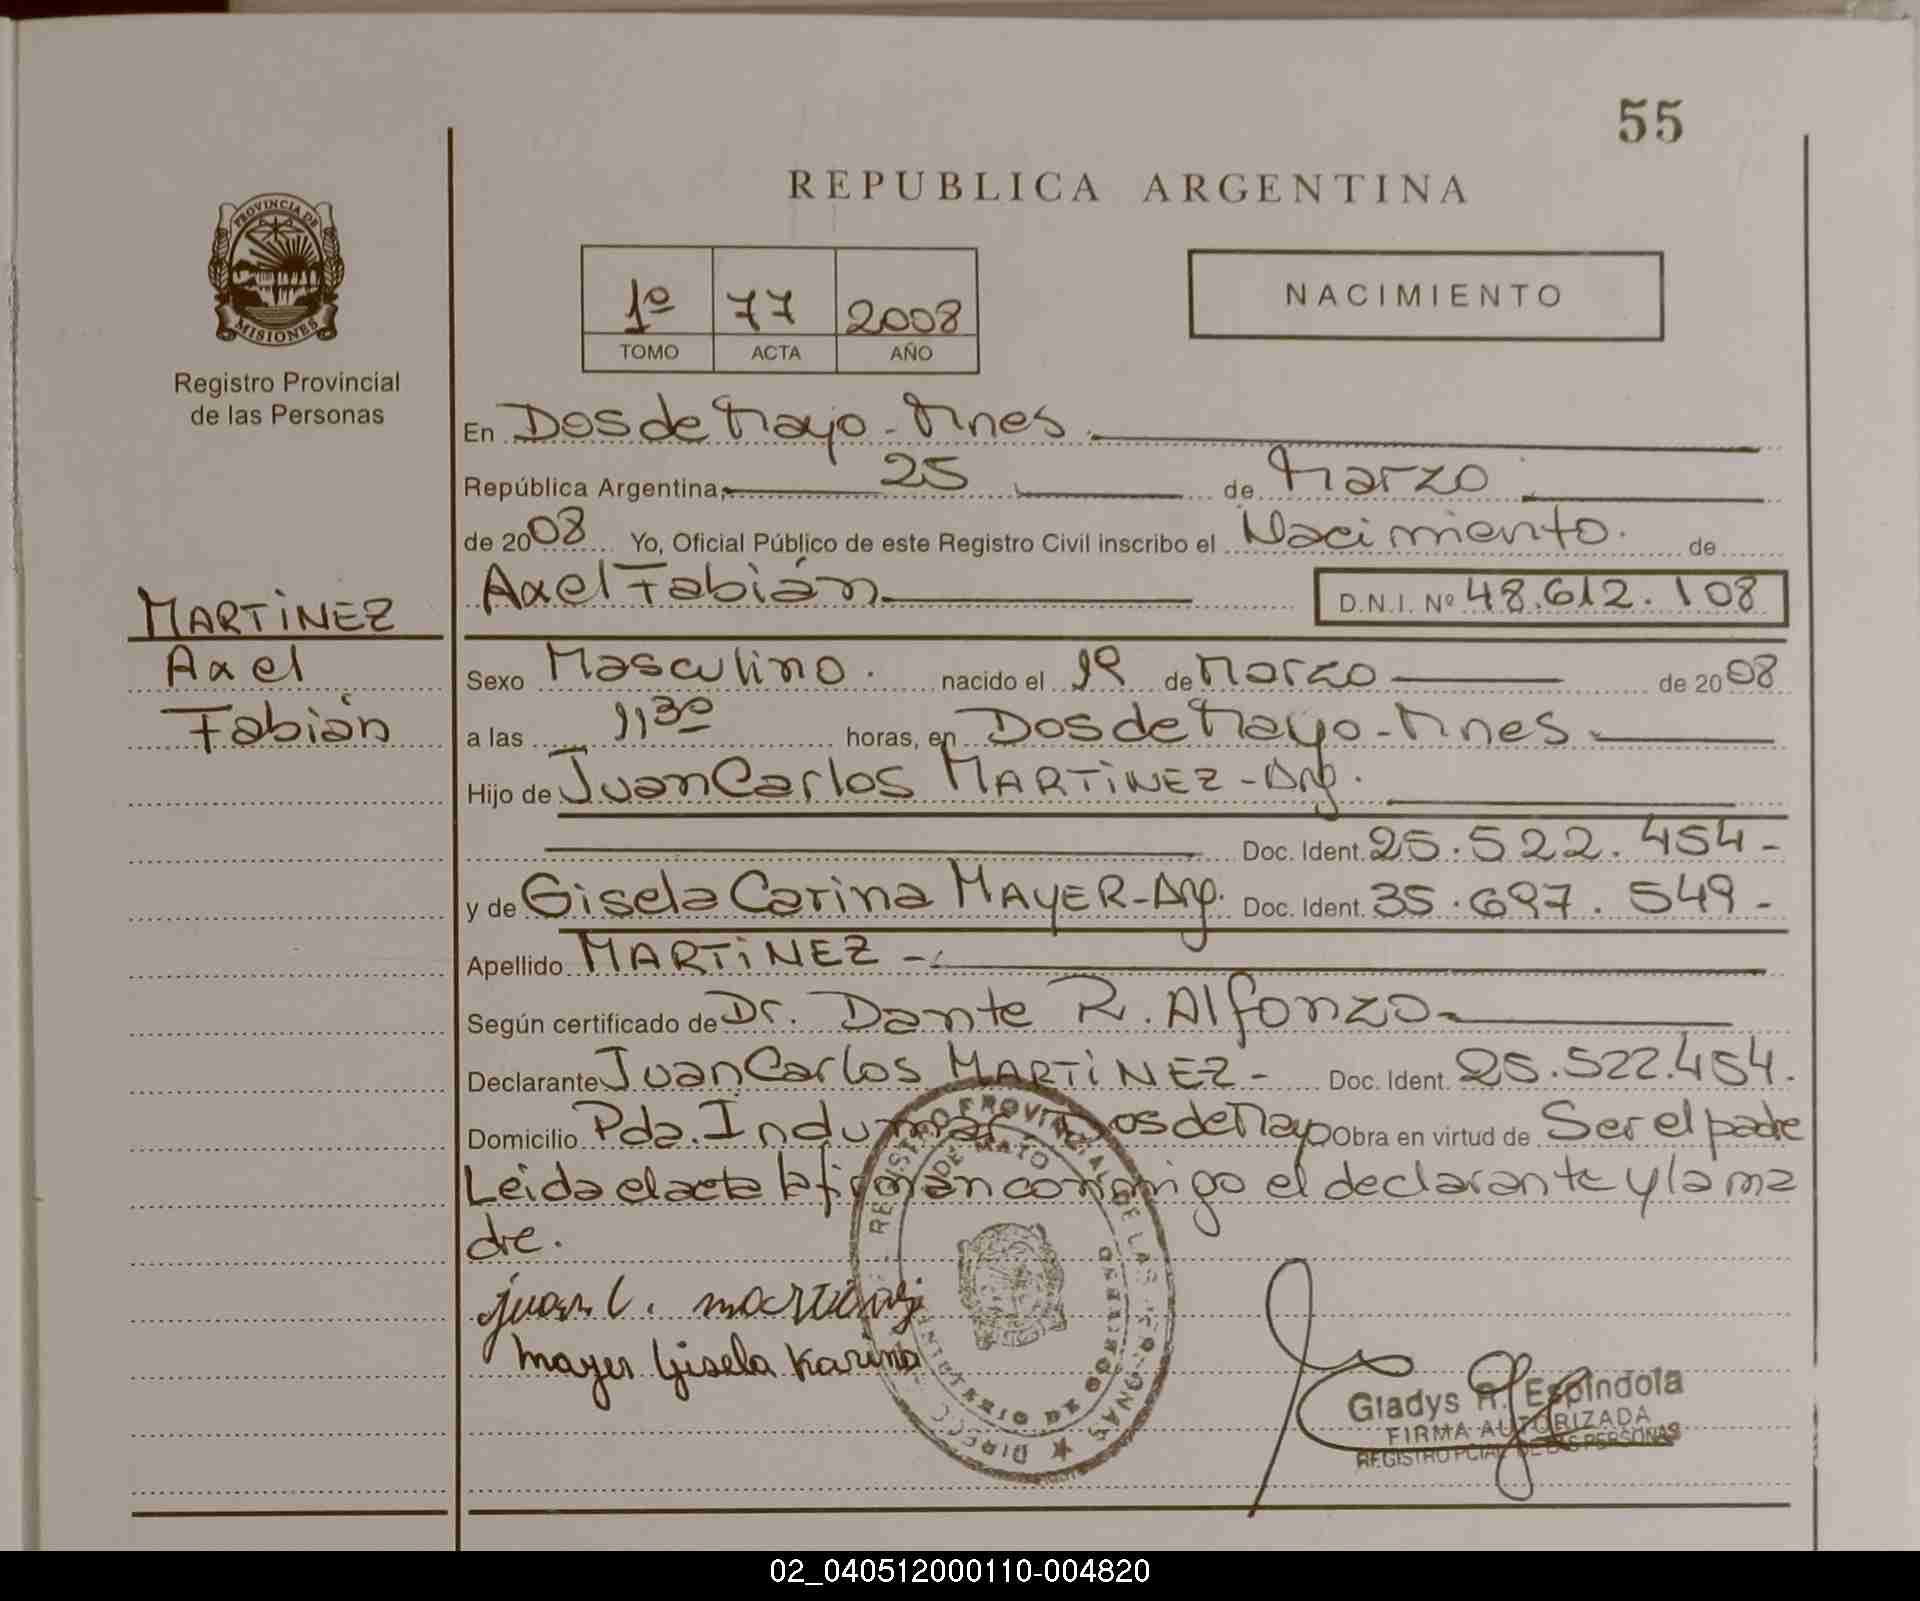 55
REPUBLICA ARGENTINA
PROVINCIA DE
MISIONES
Registro Provincial
de las Personas
1º 77 2008
TOMO ACTA AÑO
NACIMIENTO
En Dos de Mayo - Mnes.
República Argentina, 25 de Marzo
de 2008 Yo, Oficial Público de este Registro Civil inscribo el Nacimiento. de
Axel Fabián D.N.I. Nº 48.612.108
MARTiNEZ
Axel
Fabián
Sexo Masculino. nacido el 1º de Marzo de 2008
a las 11 30 horas, en Dos de Mayo - Mnes.
Hijo de Juan Carlos MARTiNEZ - Arg.
Doc. Ident. 25.522.454-
y de Gisela Carina MAYER - Arg. Doc. Ident. 35.697.549-
Apellido MARTiNEZ -
Según certificado de Dr. Dante R. Alfonzo
Declarante Juan Carlos MARTiNEZ - Doc. Ident. 25.522.454.
Domicilio Pda. Indumar Dos de Mayo Obra en virtud de Ser el padre
Leida el acta la firman conmigo el declarante y la ma
dre.
juan C. martinez
Mayer Gisela Karina
REGISTRO PROVINCIAL DE LAS PERSONAS
Gladys R. Espindola
FIRMA AUTORIZADA
REGISTRO PCIAL DE LAS PERSONAS
02_040512000110-004820